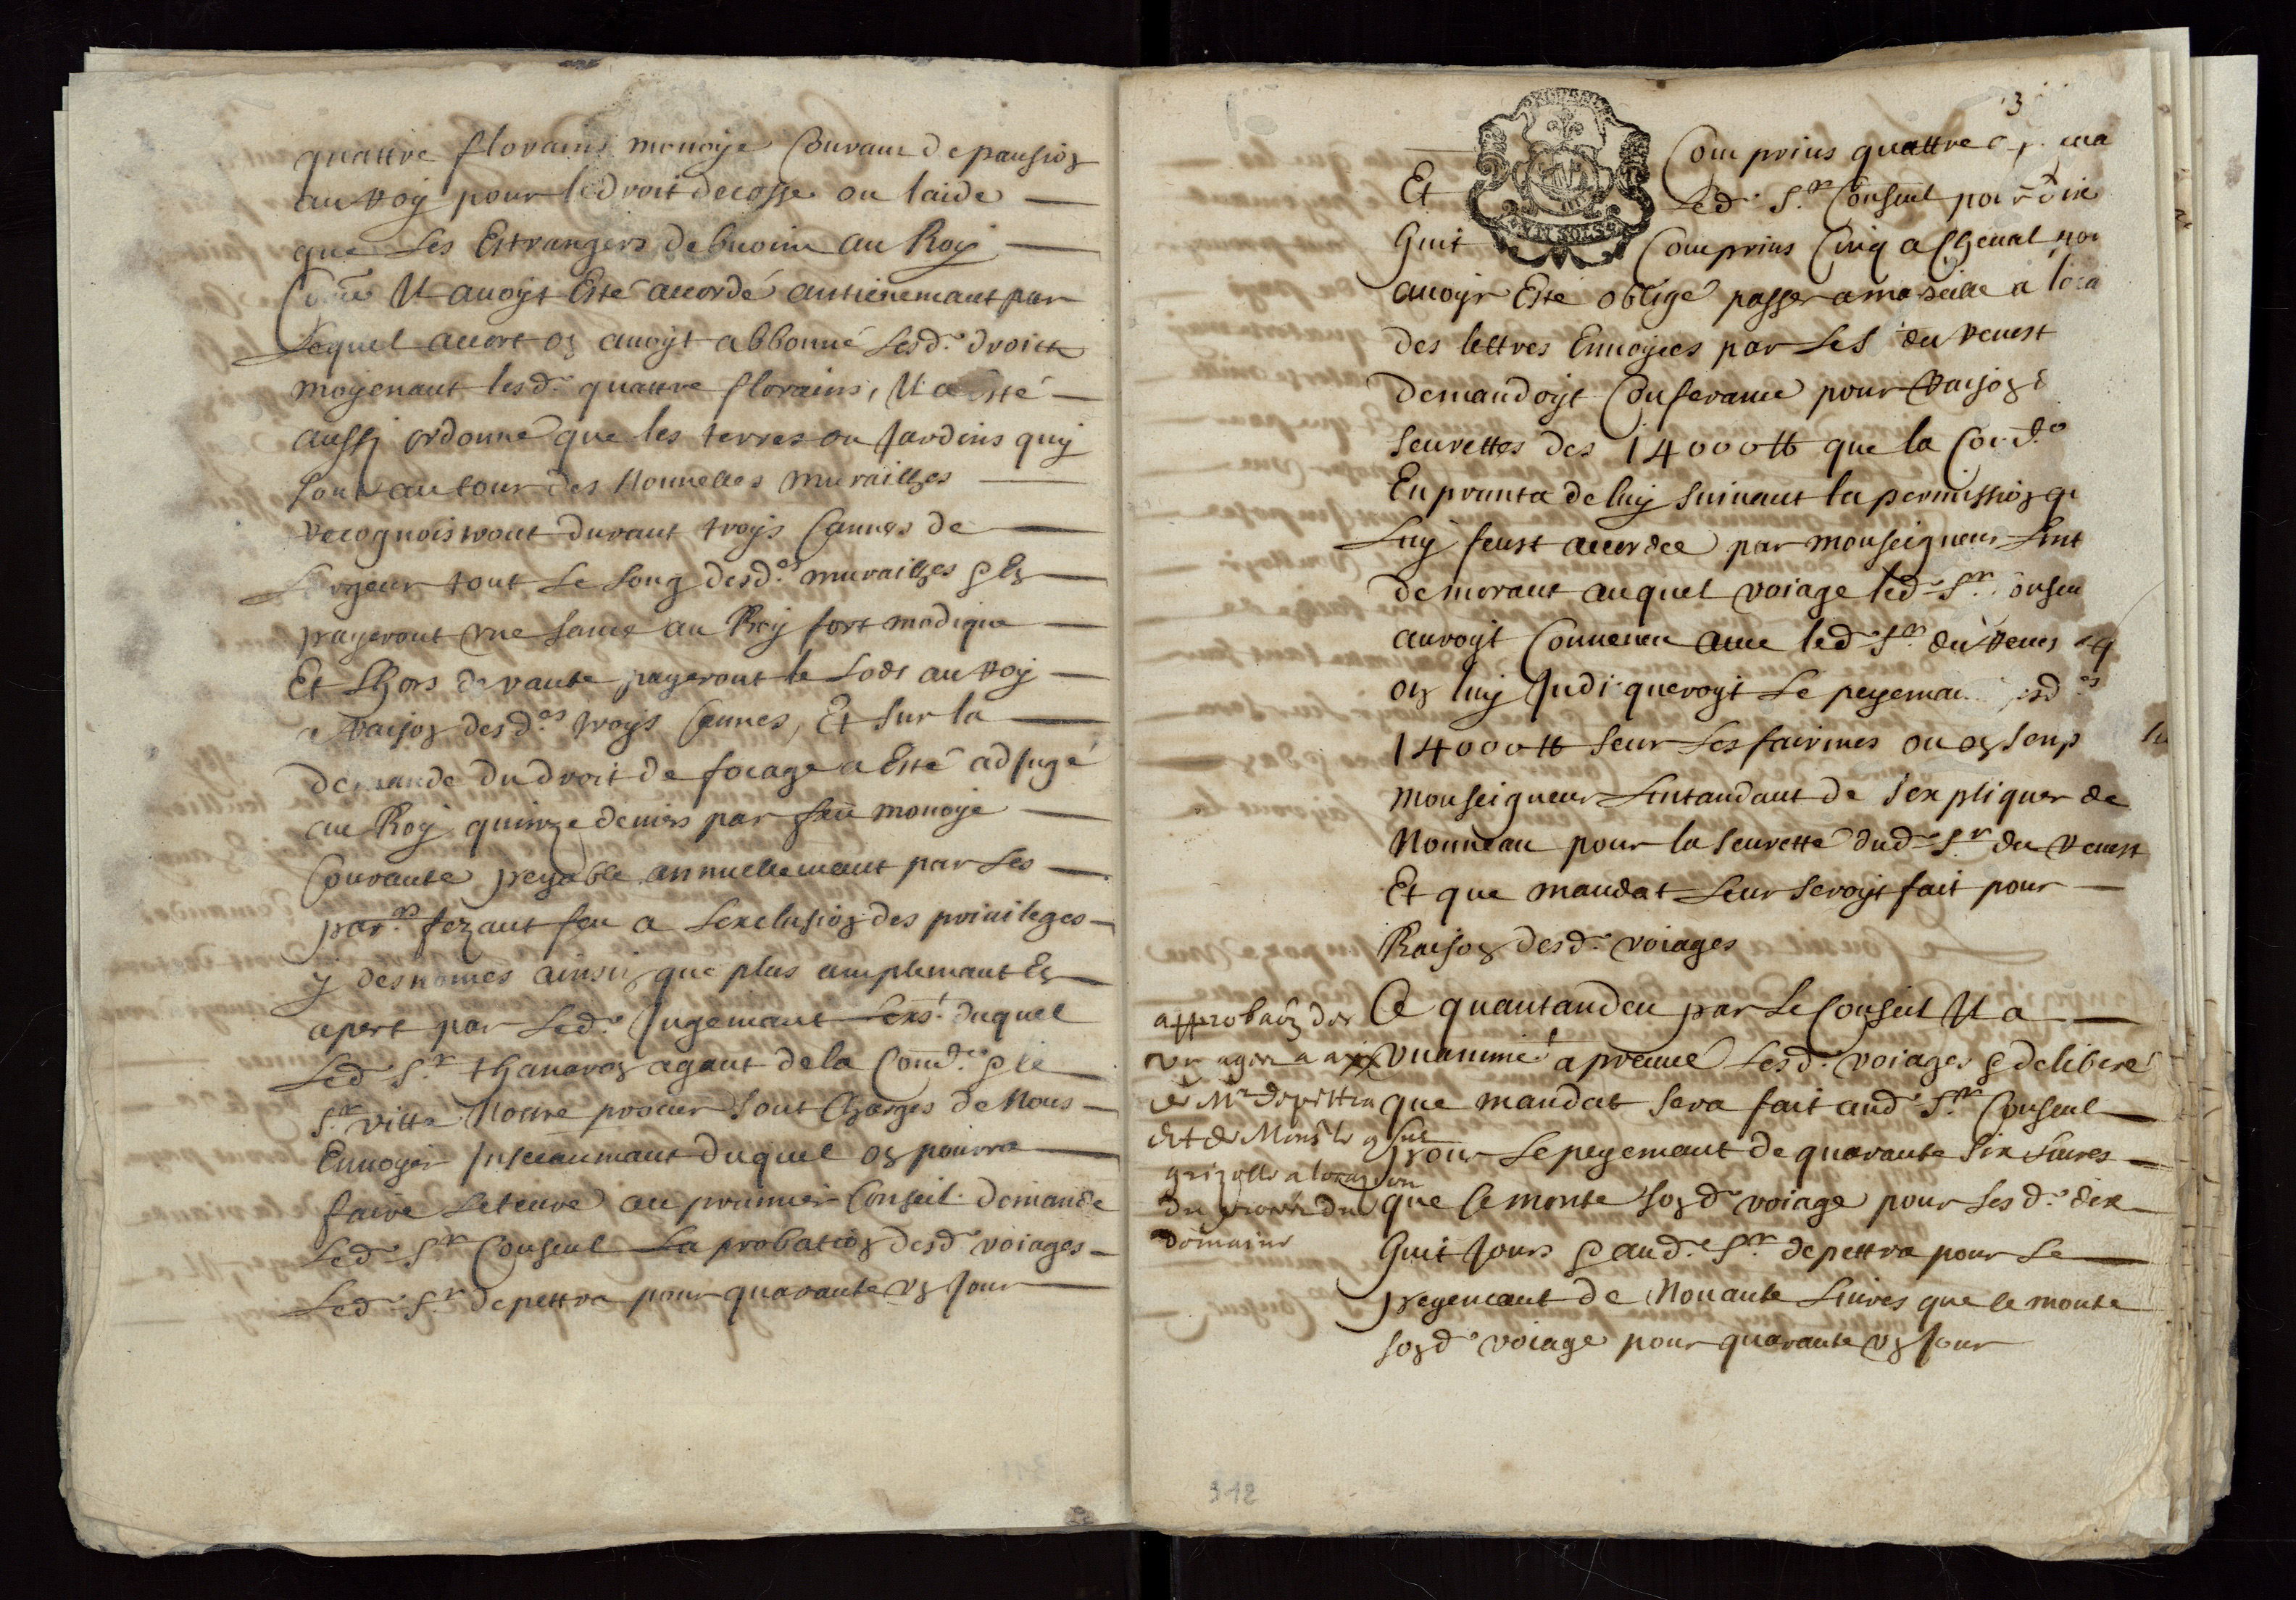 quattre florains monoye Courant de pansion
au Roy pour le droit de cosse ou laide
que Les Estrangers debvoint au Roy
Com̃e Il avoyt Esté accordé antienemant par
Lequel accort on avoyt abbonné Lesd. droict
moyenant lesd. quattre florains, Il a esté
aussy ordonné que les terres ou Jardins quy
sont au tour des Nouvelles murailhes
recognoistront durant troys Cannes de
Largeur tout Le Long desd.es murailhes & En
payeront une sance au Roy fort modique
Et Lhors de vante payeront le Lods au Roy
a Raison desd.es troys Cannes, Et sur la
demande du droit de focage a Esté adjugé
au Roy quinze deniers par feu monoye
Courante peyable annuellemant par Les
par.ers fezant feu a Lexclusion des privileges
y desnomes ainsin que plus amplemant En
apert par Led. Jugemant Lext. duquel
Led. S.r thanaron agant de la Com̃.té & le
S.r vitte Nottre procur sont Charges de Nous
Envoyer Insecamant duquel on pourra
faire Lecture au premier Conseil. demande
Led. S.r Consul La probation desd. voiages
Led. S.r depettra pour quarante un Jour
3
Comprins quattre a
Et Led. S.r Consul pour dix
huit Comprins Cinq a Cheval pour
avoyr Esté obligé passer a marseille a
des lettres Envoyees par Le S.r du Revest
demandoyt Conferance pour Raison d
seurettes des 14000 tt que la Com.té
Enprunta de luy suivant la permission q
Luy feust accordee par monseigneur Lint
demurant auquel voiage led. S.r Consul
auroyt Convenu avec led. S.r du Reves q
on luy Indiqueroyt Le peyeman desd.es
14000 tt seur Les fairmes ou on
monseigneur Lintandant de sexpliquer de
Nouveau pour la seuretté dud. S.r du Revest
Et que mandat Leur seroyt fait pour
Raison desd. voiages
Ce quantandeu par Le Conseil Il a
unanimé aprouvé Lesd. voiages & deliberé
que mandat sera fait aud. S.r Consul
pour Le peyemant de quarante six Livres
que Ce monte son d. voiage pour Les d. dix
huit Jours & aud. S.r depettra pour Le
peyemant de Nonante Livres que Ce monte
son d. voiage pour quarante un Jour
approbaõn des
voyages a aix
de M.r depettra
et de Mons.r le Consul
a loccasion
du procès du
domaine
312